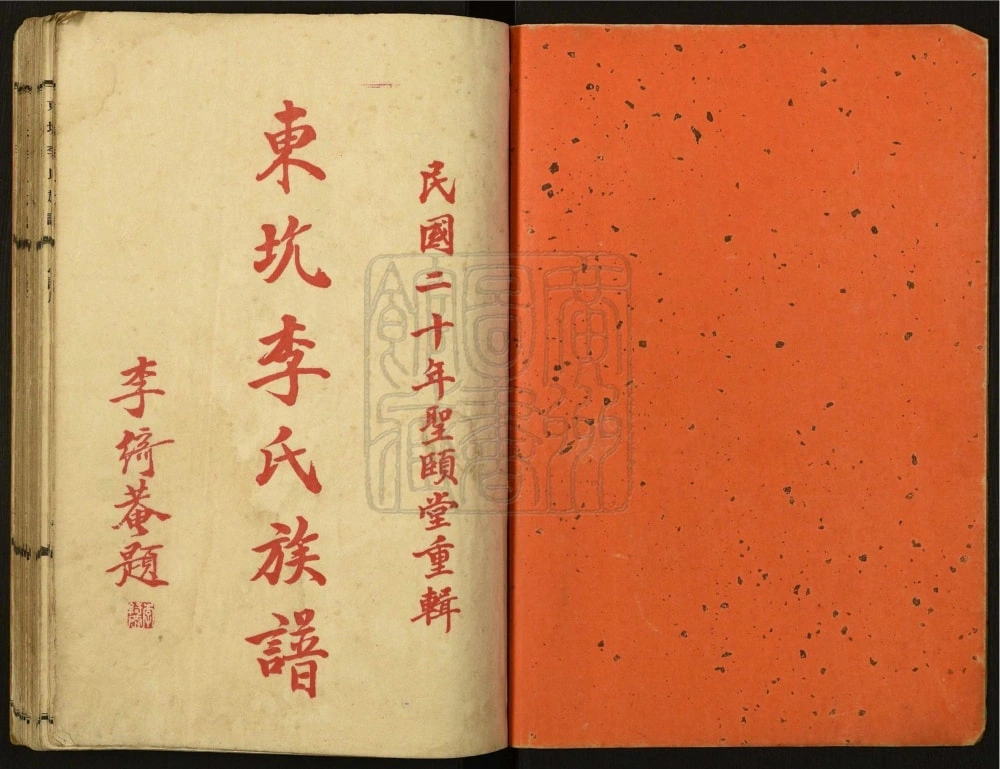 民國二十年聖頤堂重輯
東坑李氏族譜
李綺菴題
廣州圖書館